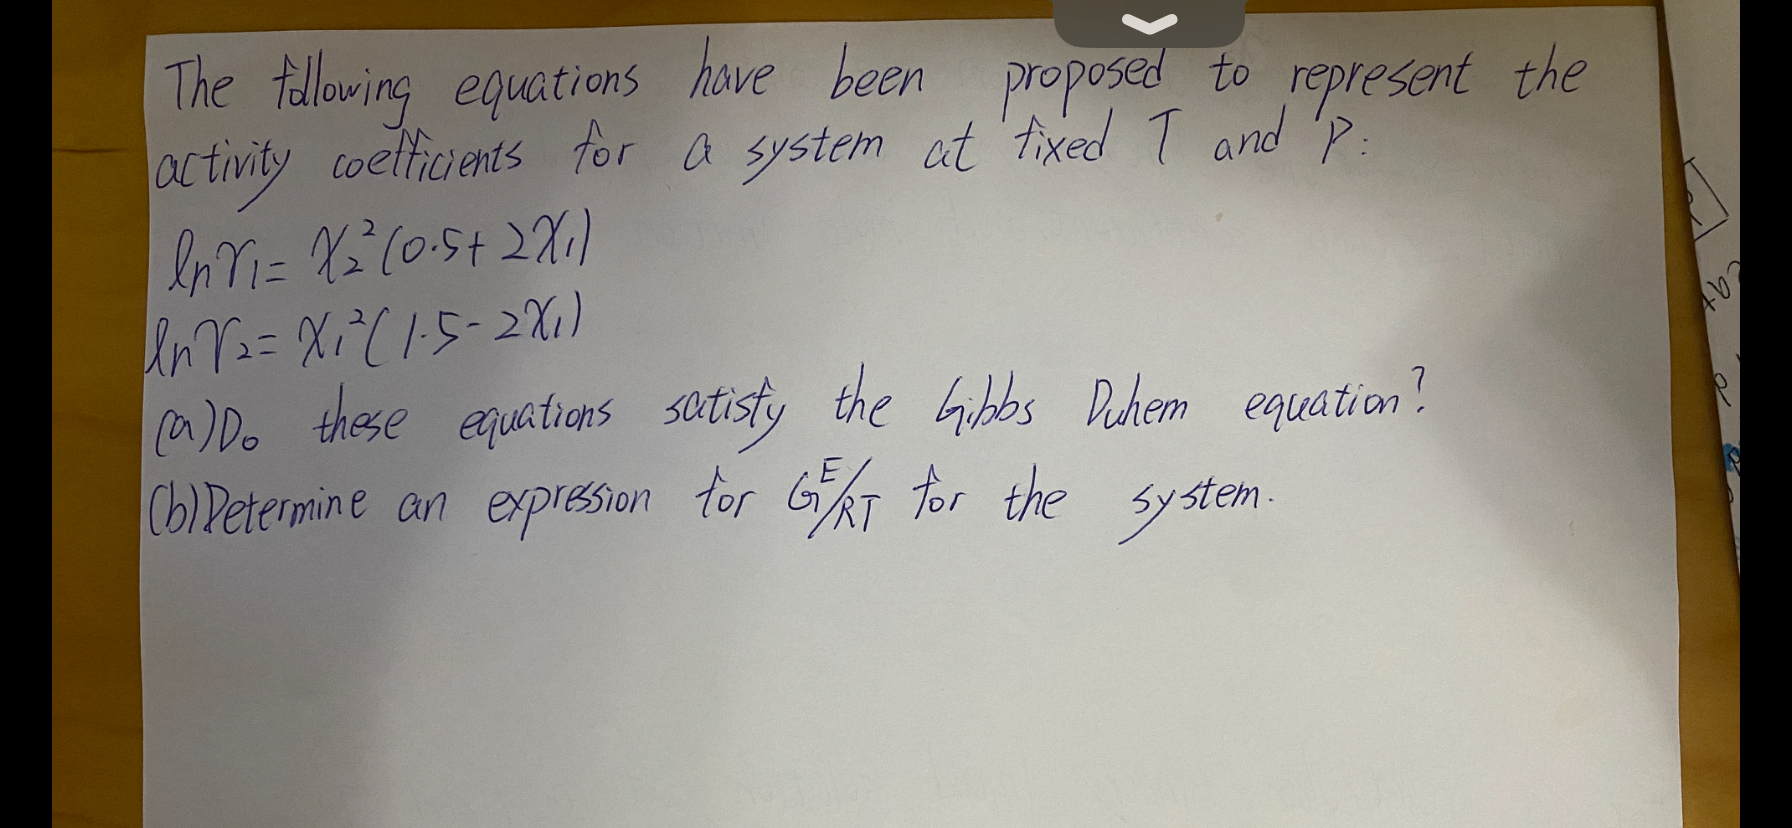 The following equations have been proposed to represent the
activity coefficients for a system at fixed T and P:
lnγ₁= X₂²(0.5+ 2X₁)
lnγ₂= X₁²(1.5- 2X₁)
(a)Do these equations satisfy the Gibbs Duhem equation?
(b)Determine an expression for Gᴱ/RT for the system.